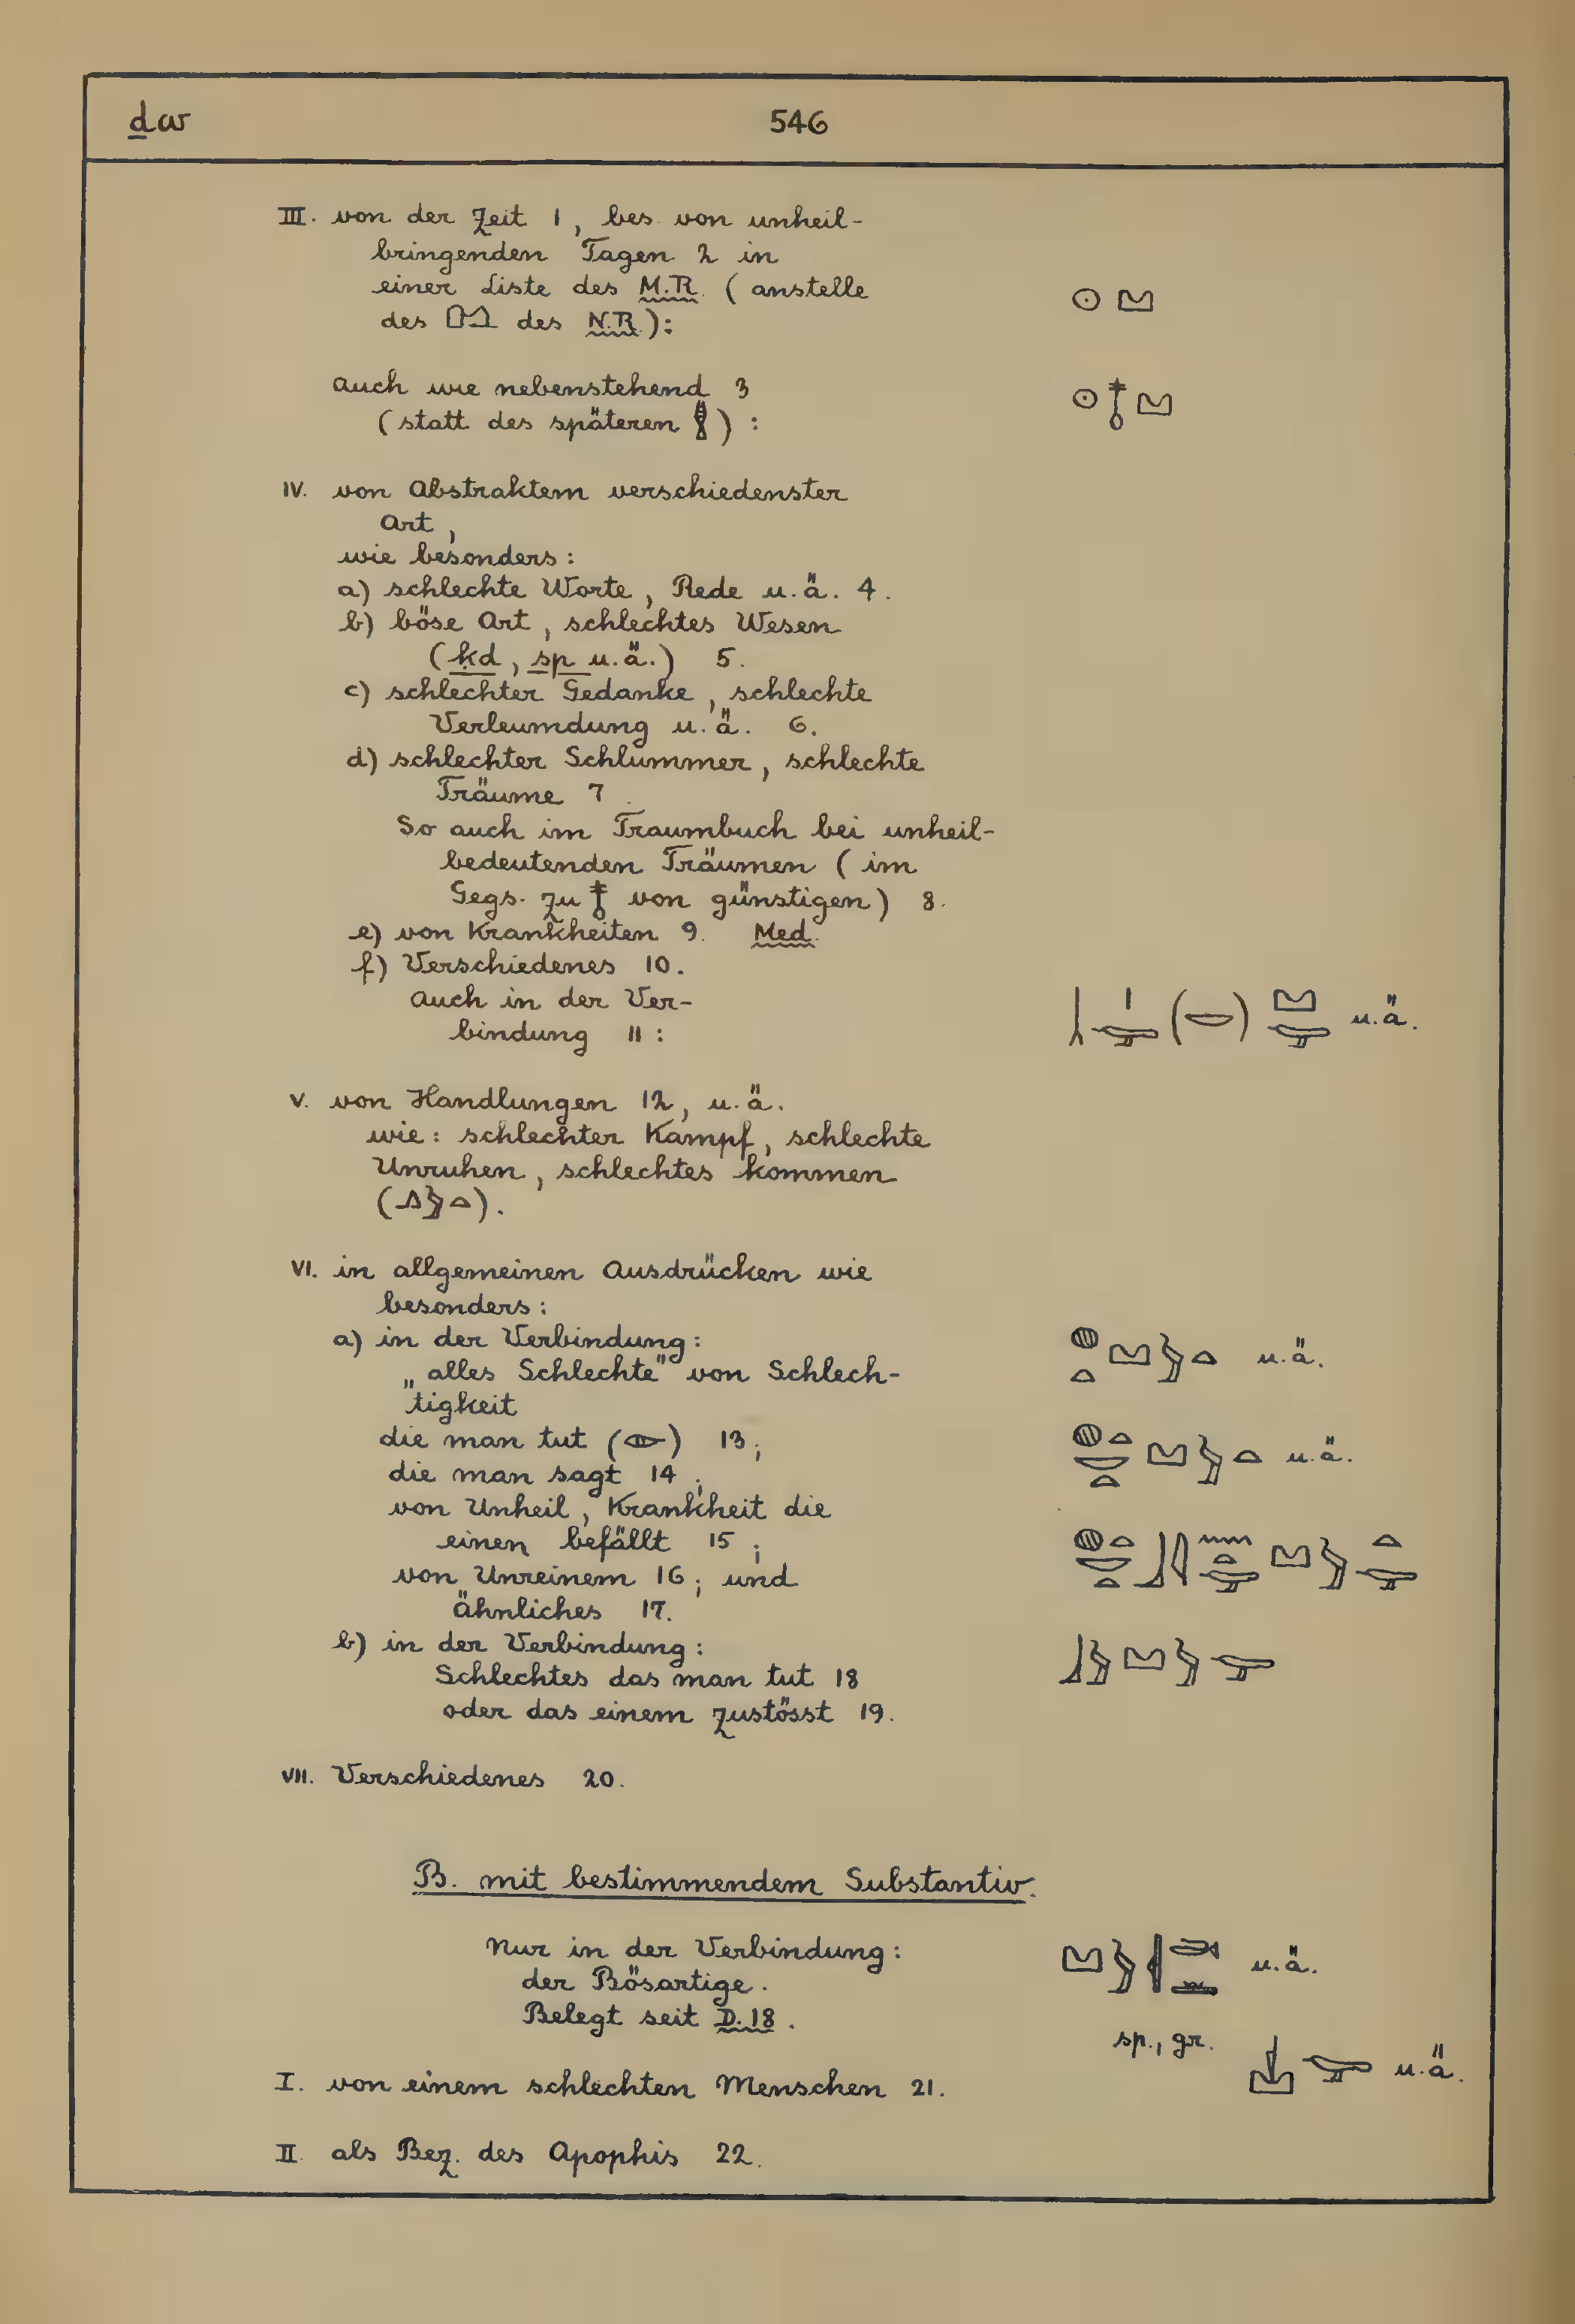 ḏw
546
III. von der Zeit 1, bes. von unheil-
bringenden Tagen 2 in
einer Liste des M.R. (anstelle
des des N.R.):
auch wie nebenstehend 3
(statt des späteren ) :
IV. von Abstraktem verschiedenster
Art,
wie besonders:
a) schlechte Worte, Rede u.ä. 4.
b) böse Art, schlechtes Wesen
(ḳd, sp u.ä.) 5.
c) schlechter Gedanke, schlechte
Verleumdung u.ä. 6.
d) schlechter Schlummer, schlechte
Träume 7.
So auch im Traumbuch bei unheil-
bedeutenden Träumen (im
Gegs. zu 𓄤 von günstigen) 8.
e) von Krankheiten 9. Med.
f) Verschiedenes 10.
auch in der Ver-
bindung 11: u.ä.
V. von Handlungen 12, u.ä.
wie: schlechter Kampf, schlechte
Unruhen, schlechtes kommen
( ).
VI. in allgemeinen Ausdrücken wie
besonders:
a) in der Verbindung: u.ä.
„alles Schlechte" von Schlech-
tigkeit
die man tut ( ) 13; u.ä.
die man sagt 14;
von Unheil, Krankheit die
einen befällt 15;
von Unreinem 16; und
ähnliches 17.
b) in der Verbindung:
Schlechtes das man tut 18
oder das einem zustösst 19.
VII. Verschiedenes 20.
B. mit bestimmendem Substantiv.
Nur in der Verbindung: u.ä.
der Bösartige.
Belegt seit D.18.
sp., gr. u.ä.
I. von einem schlechten Menschen 21.
II. als Bez. des Apophis 22.